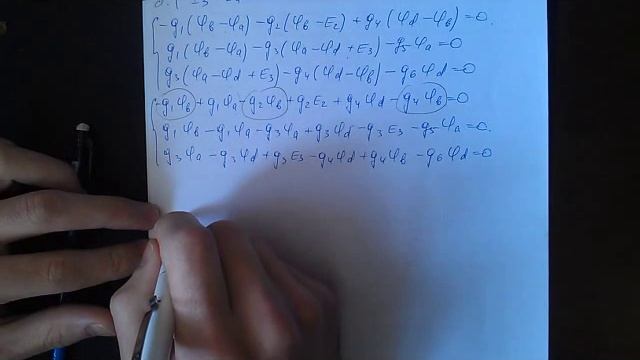 -g₁(φв-φa)-g₂(φв-E₂)+g₄(φd-φв)=0.
g₁(φв-φa)-g₃(φa-φd+E₃)-g₅φa=0
g₃(φa-φd+E₃)-g₄(φd-φв)-g₆φd=0
-g₁φв+g₁φa-g₂φв+g₂E₂+g₄φd-g₄φв=0
g₁φв-g₁φa-g₃φa+g₃φd-g₃E₃-g₅φa=0.
g₃φa-g₃φd+g₃E₃-g₄φd+g₄φв-g₆φd=0